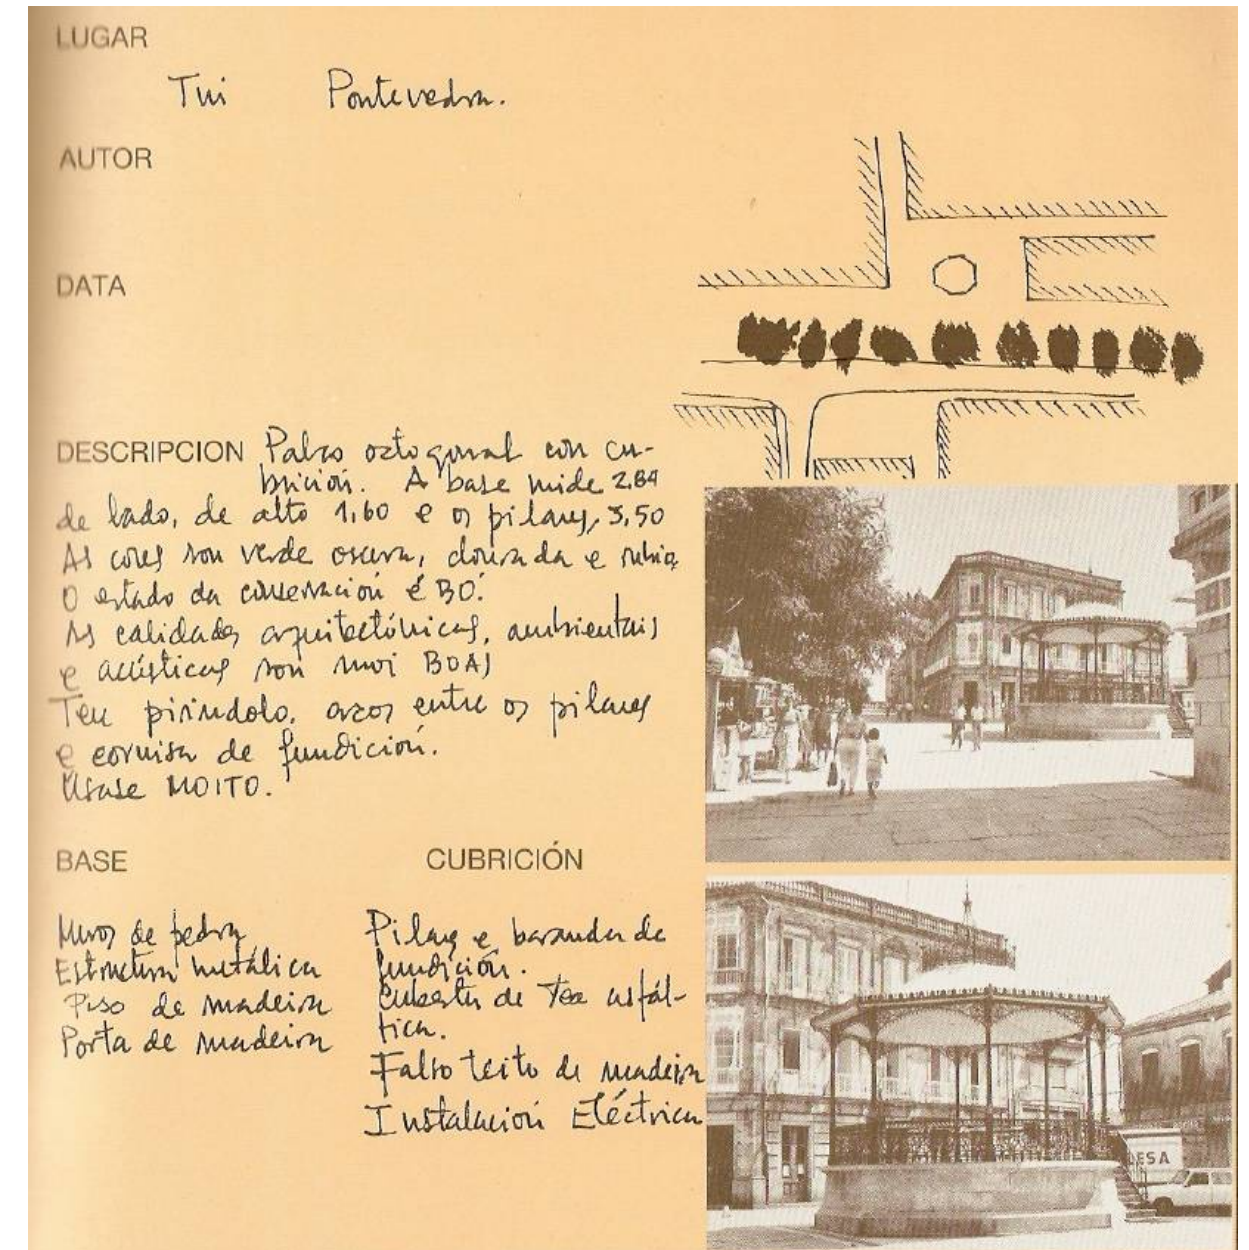 LUGAR
Tui Pontevedra.
AUTOR
DATA
DESCRIPCION Palco octogonal con cu-
brición. A base mide 2,84
de lado, de alto 1,60 e os pilares, 3,50
As cores son verde oscura, dourada e rubia.
O estado da conservación é BO.
As calidades arquitectónicas, ambientais
e acústicas son moi BOAS
Ten pirindolo, arcos entre os pilares
e cornisa de fundición.
Úsase MOITO.
BASE
Muros de pedra
Estructura metálica
Piso de madeira
Porta de madeira
CUBRICIÓN
Pilares e baranda de
fundición.
Cuberta de Tea asfál-
tica.
Falso teito de madeira
Instalación Eléctrica
LESA